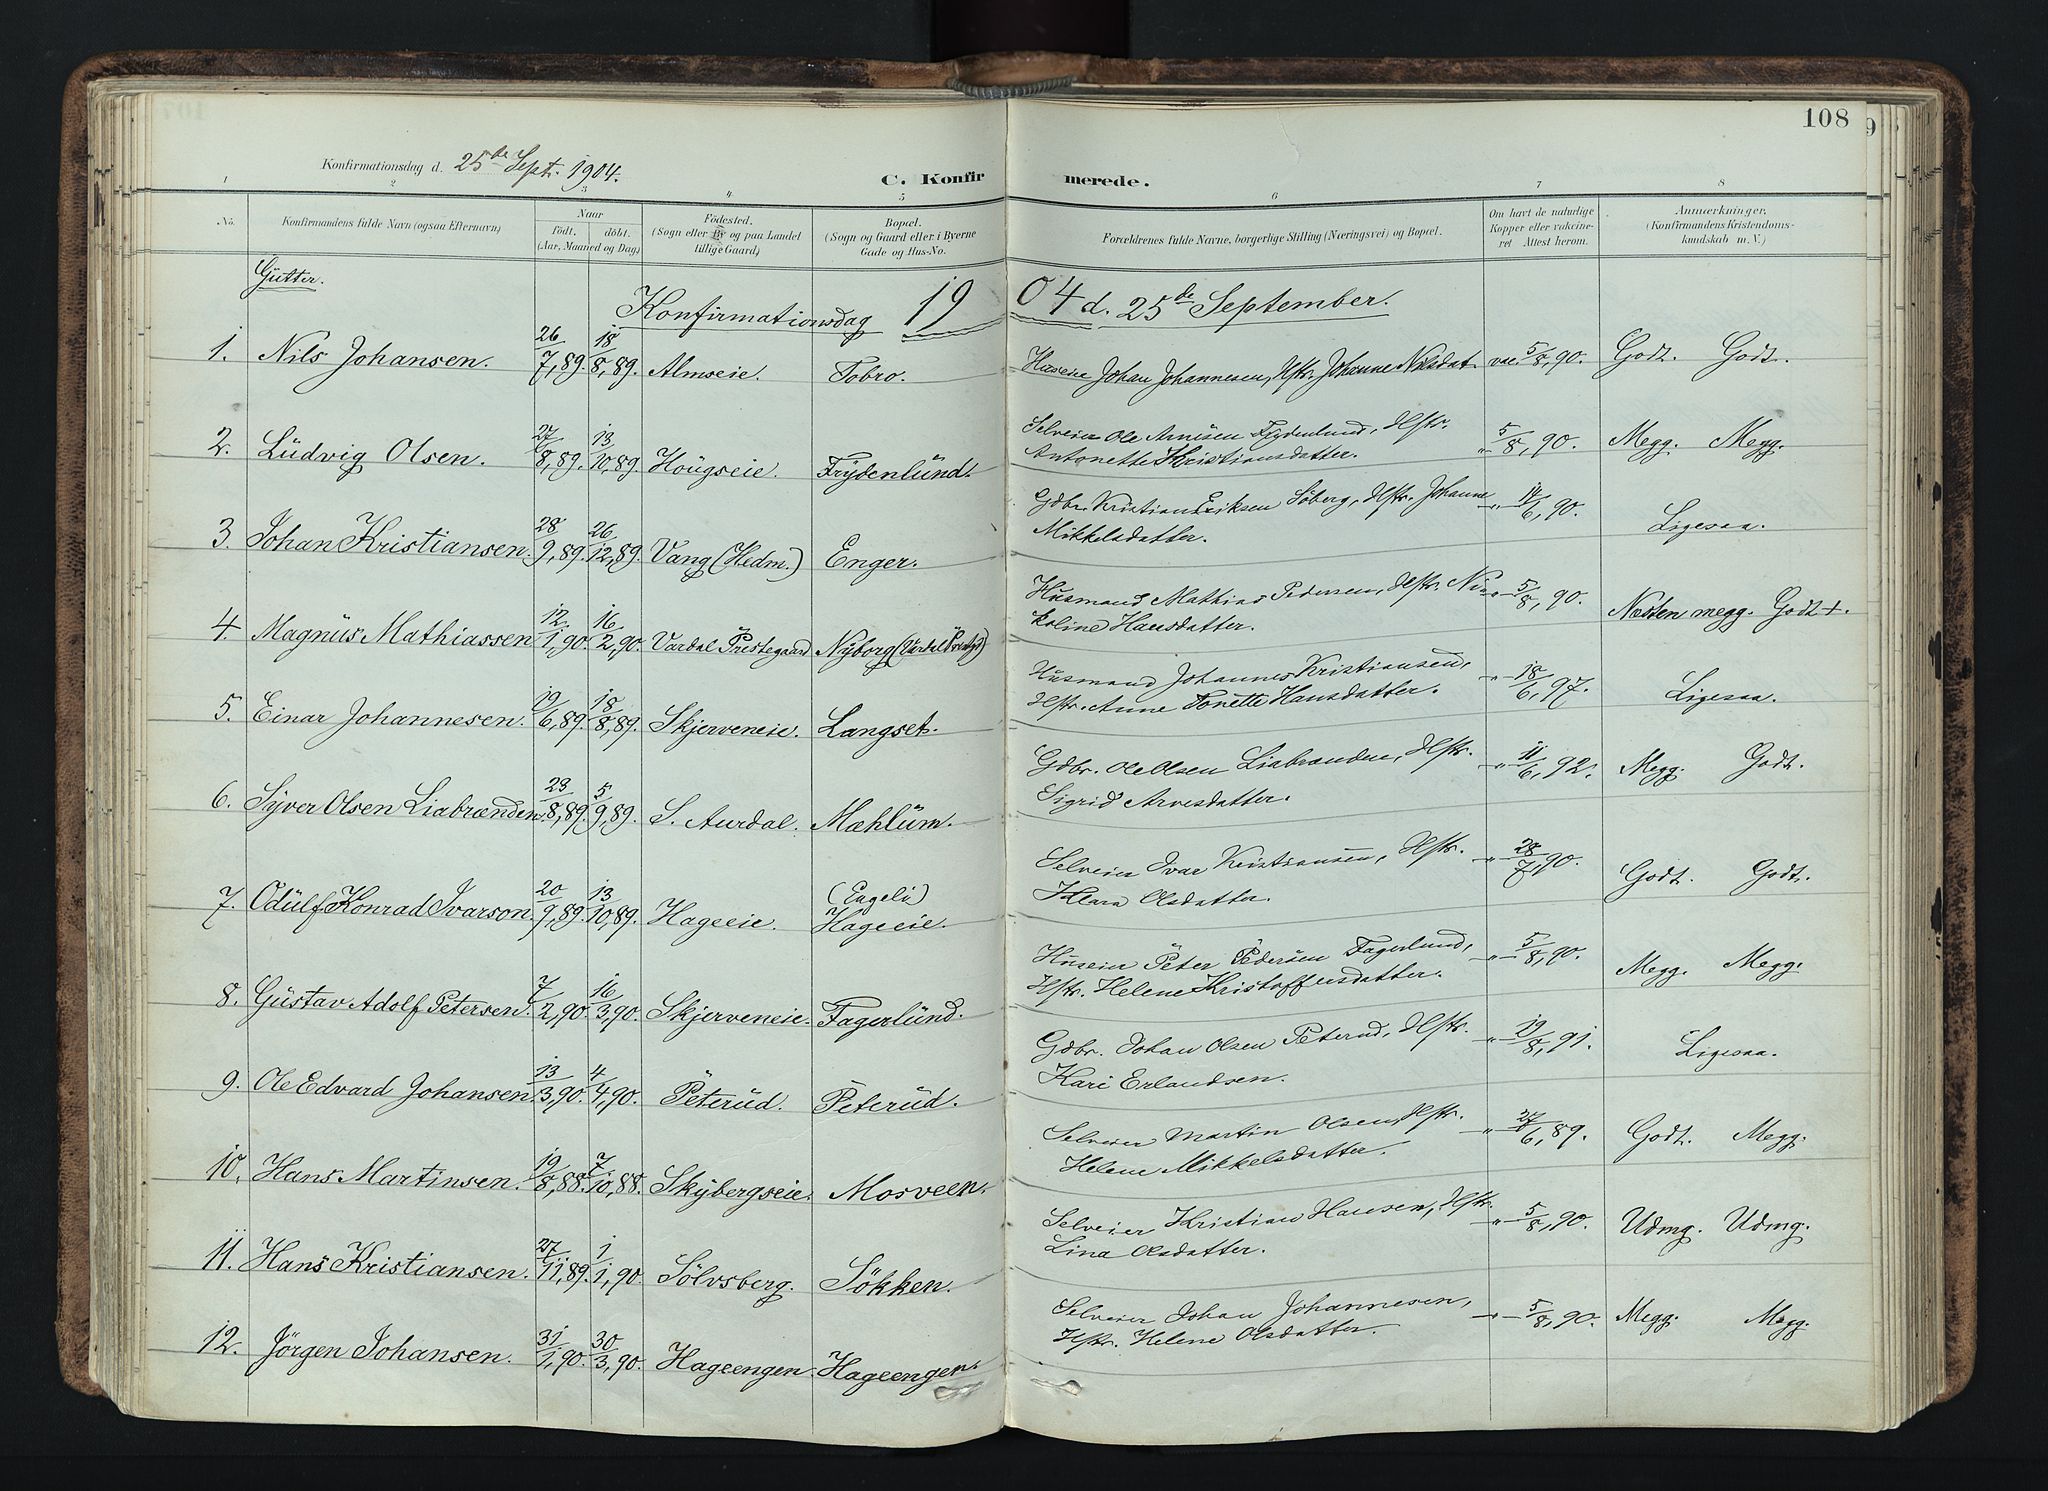 108
9
Konfirmationsdag d. 25de Sept. 1904.
C. Konfirmerede.
1 2 3 4 5 6 7 8
No.
Konfirmandens fulde Navn (ogsaa Efternavn)
Naar
født. døbt.
(Aar, Maaned og Dag)
Fødested.
(Sogn eller By og paa Landet
tillige Gaard)
Bopæl.
(Sogn og Gaard eller i Byerne
Gade og Hus-No.
Forældrenes fulde Navne, borgerlige Stilling (Næringsvei) og Bopæl.
Om havt de naturlige
Kopper eller vaccineret
Attest herom.
Anmærkninger.
(Konfirmandens Kristendomskundskab
m. V.)
Gutter.
Konfirmationsdag 1904 d. 25de September.
1. Nils Johansen. 26/7,89. 18/8,89. Almseie. Tobro.
Huseie Johan Johannesen, Hstr. Johanne Nilsdat. vac. 5/8,90. Godt. Godt.
2. Ludvig Olsen. 27/8,89. 13/10,89. Hougseie. Frydenlund.
Selveier Ole Arnesen Frydenlund, Hstr.
Antonette Kristiansdatter. -"- 5/8,90. Megg. Megg.
3. Johan Kristiansen. 28/9,89. 26/12,89. Vang (Hedm.) Enger.
Gdbr. Kristian Eriksen Söberg, Hstr. Johanne
Mikkelsdatter. -"- 14/6,90. Ligesaa.
4. Magnus Mathiassen 12/1,90. 16/2,90. Vardal Præstegaard Nyborg (Vardal Præstgd)
Husmand Mathias Pedersen, Hstr. Nikoline
Hansdatter. -"- 5/8,90. Næsten megg. Godt +.
5. Einar Johannesen. 19/6,89. 18/8,89. Skjerveneie. Langset.
Husmand Johannes Kristiansen,
Hstr. Anne Tonette Hansdatter. -"- 18/6,97. Ligesaa.
6. Syver Olsen Liabrænden. 23/8,89. 5/9,89. S. Aurdal. Mæhlum.
Gdbr. Ole Olsen Liabrænden, Hstr.
Sigrid Arvesdatter. -"- 11/6,92. Megg. Godt.
7. Odulf Konrad Ivarson. 20/9,89. 13/10,89. Hageeie. (Engeli) Hageeie.
Selveier Ivar Kristiansen, Hstr.
Klara Olsdatter. -"- 28/7,90. Godt. Godt.
8. Gustav Adolf Petersen. 7/2,90. 16/3,90. Skjerveneie. Fagerlund.
Huseier Peter Pedersen Fagerlund,
Hstr. Helene Kristoffersdatter. -"- 5/8,90. Megg. Megg.
9. Ole Edvard Johansen. 13/3,90. 4/4,90. Peterud. Peterud.
Gdbr. Johan Olsen Peterud, Hstr.
Kari Erlandsen. -"- 19/8,91. Ligesaa.
10. Hans Martinsen. 19/8,88. 7/10,88. Skybergseie. Mosveen.
Selveier Martin Olsen, Hstr.
Helene Mikkelsdatter. -"- 27/6,89. Godt. Megg.
11. Hans Kristiansen. 27/11,89. 1/1,90. Sölvsberg. Sökken.
Selveier Kristian Hansen, Hstr.
Lina Olsdatter. -"- 5/8,90. Udmg. Udmg.
12. Jörgen Johansen. 31/1,90. 30/3,90. Hageengen. Hageengen.
Selveier Johan Johannesen,
Hstr. Helene Olsdatter. -"- 5/8,90. Megg. Megg.